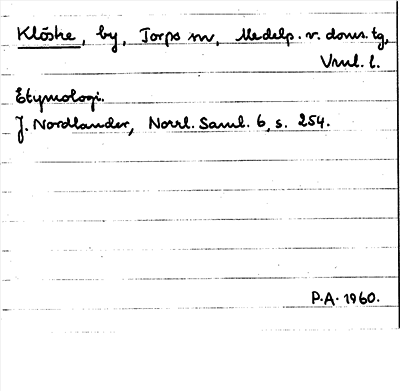 Klöske, by, Torps sn, Medelp. v. doms. tg,
Vnl. l.
Etymologi.
J. Nordlander, Norrl. Saml. 6, s. 254.
P.A. 1960.